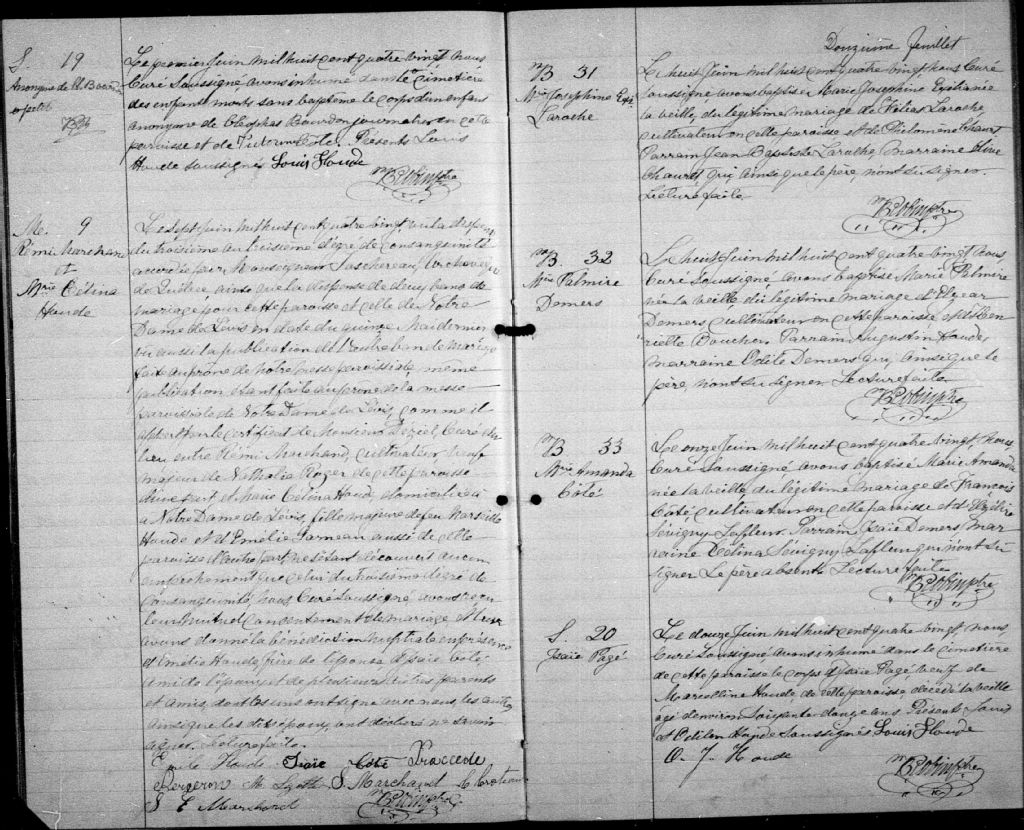 S. 19
Anonyme de Cl. Bourdon
Le premier Juin mil huit cent quatre vingt, nous
Curé Soussigné avons inhumé dans le cimetière
des enfants morts sans baptême le corps d'un enfant
anonyme de Cléophas Bourdon journalier en cette
paroisse et de Victorine Côté. Présents Louis
Houde soussigné. Louis Houde
M. 9
Rémi Marchand
et
Mrie Célina
Houde
Le sept Juin mil huit cent quatre vingt, vu la dispense
du troisième au troisième degré de consanguinité
accordée par Monseigneur Taschereau, Archevêque
de Québec ainsi que la dispense de deux bans de
mariage pour cette paroisse et celle de Notre
Dame de Lévis en date du quinze Mai dernier
vu aussi la publication de l'autre ban de mariage
faite au prône de notre messe paroissiale, même
publication étant faite au prône de la messe
paroissiale de Notre Dame de Lévis, comme il
appert par le certificat de Monsieur Déziel, Curé du
lieu entre Rémi Marchand, cultivateur
majeur de Nathalie Roger de cette paroisse
d'une part et Marie Célina Houde domiciliée
à Notre Dame de Lévis, fille majeure de feu Marseille
Houde et d'Emélie Garneau aussi de cette
paroisse d'autre part, ne s'étant découvert aucun
empêchement que celui du troisième degré de
consanguinité, nous Curé Soussigné avons reçu
leur mutuel consentement de mariage et leur
avons donné la bénédiction nuptiale en présence
d' Houde, frère de l'épouse d'Isaïe Côté
ami de l'époux et de plusieurs autres parents
et amis, dont les uns ont signé avec nous, les autres
ainsi que les dits époux, ont déclaré ne savoir
signer. Lecture faite.
Houde Isaïe Côté Praccede
Bergeron S Marchand
S E Marchand
Douzième feuillet
B 31
Mrie Josephine Eph.
Laroche
Le huit Juin mil huit cent quatre vingt, nous Curé
Soussigné, avons baptisé Marie Josephine Ephanie
la veille, du légitime mariage de Laroche
cultivateur en cette paroisse et de Philomène Chauret
Parrain Jean Baptiste Laroche, Marraine Olive
Chauret, qui, ainsi que le père, n'ont su signer.
Lecture faite
B. 32
Mrie Palmire
Demers
Le huit Juin mil huit cent quatre vingt, nous
Curé Soussigné, avons baptisé Marie Palmire
née la veille, du légitime mariage d'Elzéar
Demers cultivateur en cette paroisse et d'Hen-
riette Boucher. Parrain Augustin Houde,
marraine Odile Demers qui, ainsi que le
père, n'ont su signer. Lecture faite
B 33
Mrie Amanda
Côté
Le onze Juin mil huit cent quatre vingt, nous
Curé Soussigné, avons baptisé Marie Amanda
née la veille, du légitime mariage de François
Côté, cultivateur en cette paroisse et d'
Sévigny Lafleur. Parrain, Isaïe Demers mar
raine Célina Sévigny Lafleur qui n'ont su
signer. Le père absent. Lecture faite
S. 20
Isaïe Pagé
Le douze Juin mil huit cent quatre vingt, nous,
Curé Soussigné, avons inhumé dans le cimetière
de cette paroisse le corps d'Isaïe Pagé veuf de
Marcelline Houde, de cette paroisse, décédé la veille
âgé d'environ soixante douze ans. Présents Louis
et Odilon Houde Soussignés Louis Houde
O. J. Houde